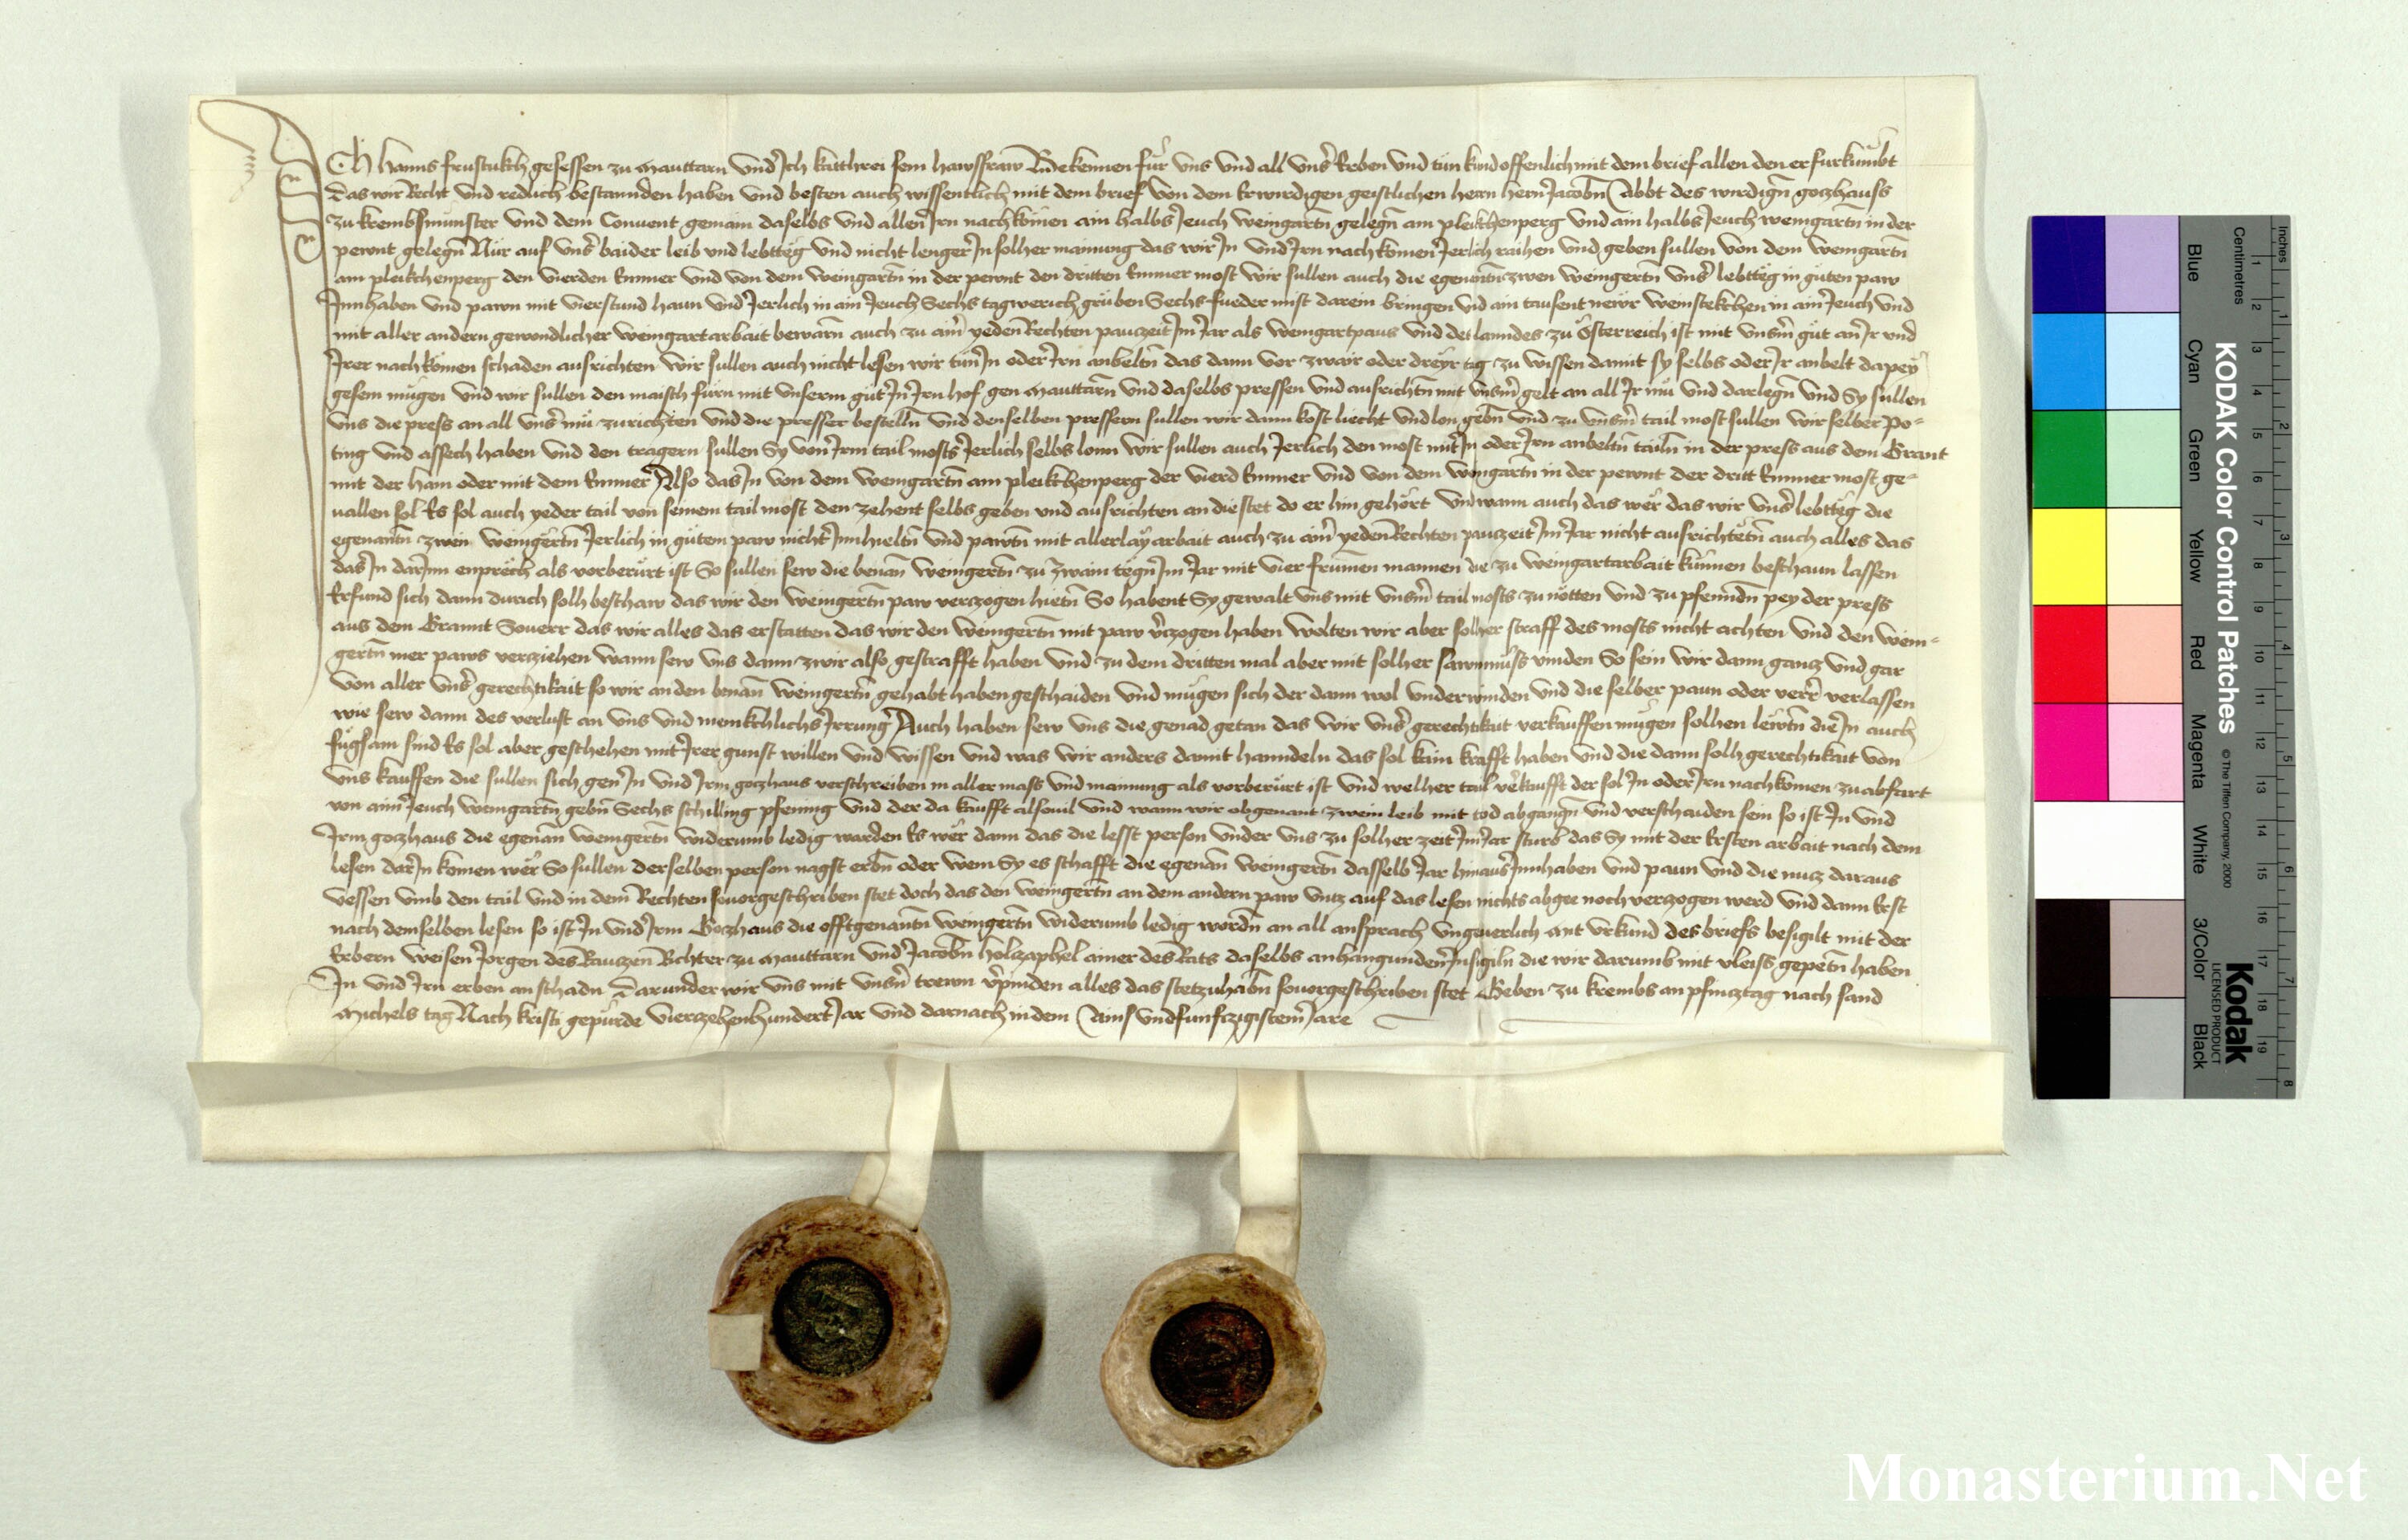 Ich Hanns frustukch gesessen zu Mauttarn vnd Ich kathrei sein hawsfraw Bekennen für vns vnd all vnser Erben vnd tün kund offenlich mit dem brief allen den er furkumbt
das wir Recht vnd redlich bestannden haben vnd besten auch wissentlich mit dem brief von dem Erwirdigen geistlichen herrn hern Jacobn Abbt des wirdign gotzhauss
zu krembsmunster vnd dem Conuent gemain daselbs vnd allen Irn nachkomen ain halbs Jeuch weingartn gelegn am pleikchenperg vnd ain halbs Jeuch weingartn in der
pewnt gelegn Nür auf vnser baider leib vnd lebttëg vnd nicht lenger In solher mainung das wir In vnd Irn nachkomen Jerlich raihen vnd geben sullen von dem weingartn
am pleikchenperg den vierden Emmer vnd von dem weingartn in der pewnt den dritten Emmer most wir sullen auch die egenantn zwen weingertn vnser lebttëg in güten paw
Innhaben vnd pawn mit vierstund haun vnd Jerlich in ain Jeuch Sechs tagwerich grüben Sechs fueder mist darein bringen vnd ain tausent newr weinstekchen in ain Jeuch vnd
mit aller andern gewondlicher weingartarbait bewarn auch zu aim yeden Rechten pauzeit Im Jar als weingartpaus vnd des lanndes zu Österreich ist mit vnserm güt an Ir vnd
Irer nachkomen schaden ausrichten wir sullen auch nicht lesen wir tün In oder Irn anbeltn das dann vor zwair oder dreyr tag zu wissen damit sy selbs oder Ir anbelt dapey
gesein mügen vnd wir sullen den maisch fürn mit vnserm güt In Irn hof gen Mauttarn vnd daselbs pressen vnd ausrichtn mit vnserm gelt an all Ir mü vnd darlegn vnd Sy sullen
vns die press an all vnser mü zurichten vnd die presser bestelln vnd denselben pressern sullen wir dann kost liecht vnd lon gebn vnd zu vnserm tail most sullen wir selber Po-
ting vnd assech haben vnd den tragern sullen Sy von Irm tail mosts Jerlich selbs lonn wir sullen auch Jerlich den most mit In oder Irn anbeltn tailn in der press aus dem Grant
mit der ham oder mit dem Emmer Also das In von dem weingartn am pleikchenperg der vierd Emmer vnd von dem weingartn in der pewnt der dritt Emmer most ge-
uallen sol Es sol auch yeder tail von seinem tail most den zehent selbs geben vnd ausrichten an die stet do er hin gehört vnd wann auch das wër das wir vnser lebttëg die
egenantn zwen weingertn Jerlich in gütem paw nicht Innhieltn vnd pawtn mit allerlay arbait auch zu aim yeden Rechten pauzeit Im Jar nicht ausrichtetn auch alles das
das In darInn enprëch als vorberürt ist So sullen sew die benan weingertn zu zwain tëgn Im Jar mit vier frumen mannen die zu weingartarbait künnen beschaun lassen
Erfund sich dann durich solh beschaw das wir den weingertn paw verczogen hietn So habent Sy gewalt vns mit vnserm tail mosts zu nötten vnd zu pfenndn pey der press
aus dem Grannt Souerr das wir alles das erstatten das wir den weingertn mit paw verczogen haben wolten wir aber solher straff des mosts nicht achten vnd den wein-
gertn mer paws verziehen wann sew vns dann zwir also gestrafft haben vnd zu dem dritten mal aber mit solher sawmnüss vinden So sein wir dann gancz vnd gar
von aller vnser gerechtikait so wir an den benan weingertn gehabt haben geschaiden vnd mügen sich der dann wol vnderwinden vnd die selber paun oder verrer verlassen
wie sew dann des verlust an vns vnd menikchlichs Irrung Auch haben sew vns die genad getan das wir vnser gerechtikait verkauffen mügen solhen lewtn die In auch
fügsam sind Es sol aber geschehen mit Irer gunst willen vnd wissen vnd was wir anders damit hanndeln das sol kain krafft haben vnd die dann solh gerechtikait von
vns kauffen die sullen sich gen In vnd Irm gotzhaus verschreiben in aller mass vnd mainung als vorberürt ist vnd welher tail verkaufft der sol In oder Irn nachkomen zu abfart
von aim Jeuch weingartn gebn Sechs schilling pfening vnd der da kaufft alsouil vnd wann wir obgenant zwen leib mit tod abgangn vnd verschaiden sein so ist In vnd
Irm gotzhaus die egenan weingertn widerumb ledig warden Es wër dann das die lesst person vnder vns zu solher zeit Im Jar sturb das Sy mit der Ersten arbait nach dem
lesen darIn komen wër So sullen derselben person nagst erbn oder wem Sy es schafft die egenan weingertn dasselb Jar hinaus Innhaben vnd paun vnd die nucz daraus
vessen vmb den tail vnd in dem Rechten souorgeschriben stet doch das den weingertn an dem andern paw vntz auf das lesen nichts abgee noch verzogen werd vnd dann Erst
nach demselben lesen so ist In vnd Irm Gotzhaus die offtgenantn weingertn widerumb ledig wordn an all ansprach vngeuerlich mit vrkund des briefs besigilt mit der
Erbern weisen Jorgen des Rauczen Richter zu Mauttarn vnd Jacobn holczaphel ainer des Rats daselbs anhangunden Insigiln die wir darumb mit vleiss gepetn haben
In vnd Irn erben an schadn Darunder wir vns mit vnsern trewn verpinden alles das stetzuhabn souorgeschriben stet Geben zu krembs an pfincztag nach sand
Michels tag Nach kristi gepürde Vierzehenhundert Jar vnd darnach in dem Ains vndfunfczigistem Jare
KODAK Color Control Patches
© The Tiffen Company, 2000
Kodak
LICENSED PRODUCT
Centimetres
Inches
Blue
Cyan
Green
Yellow
Red
Magenta
White
3/Color
Black
1 2 3 4 5 6 7 8 9 10 11 12 13 14 15 16 17 18 19
1 2 3 4 5 6 7 8
Monasterium.Net